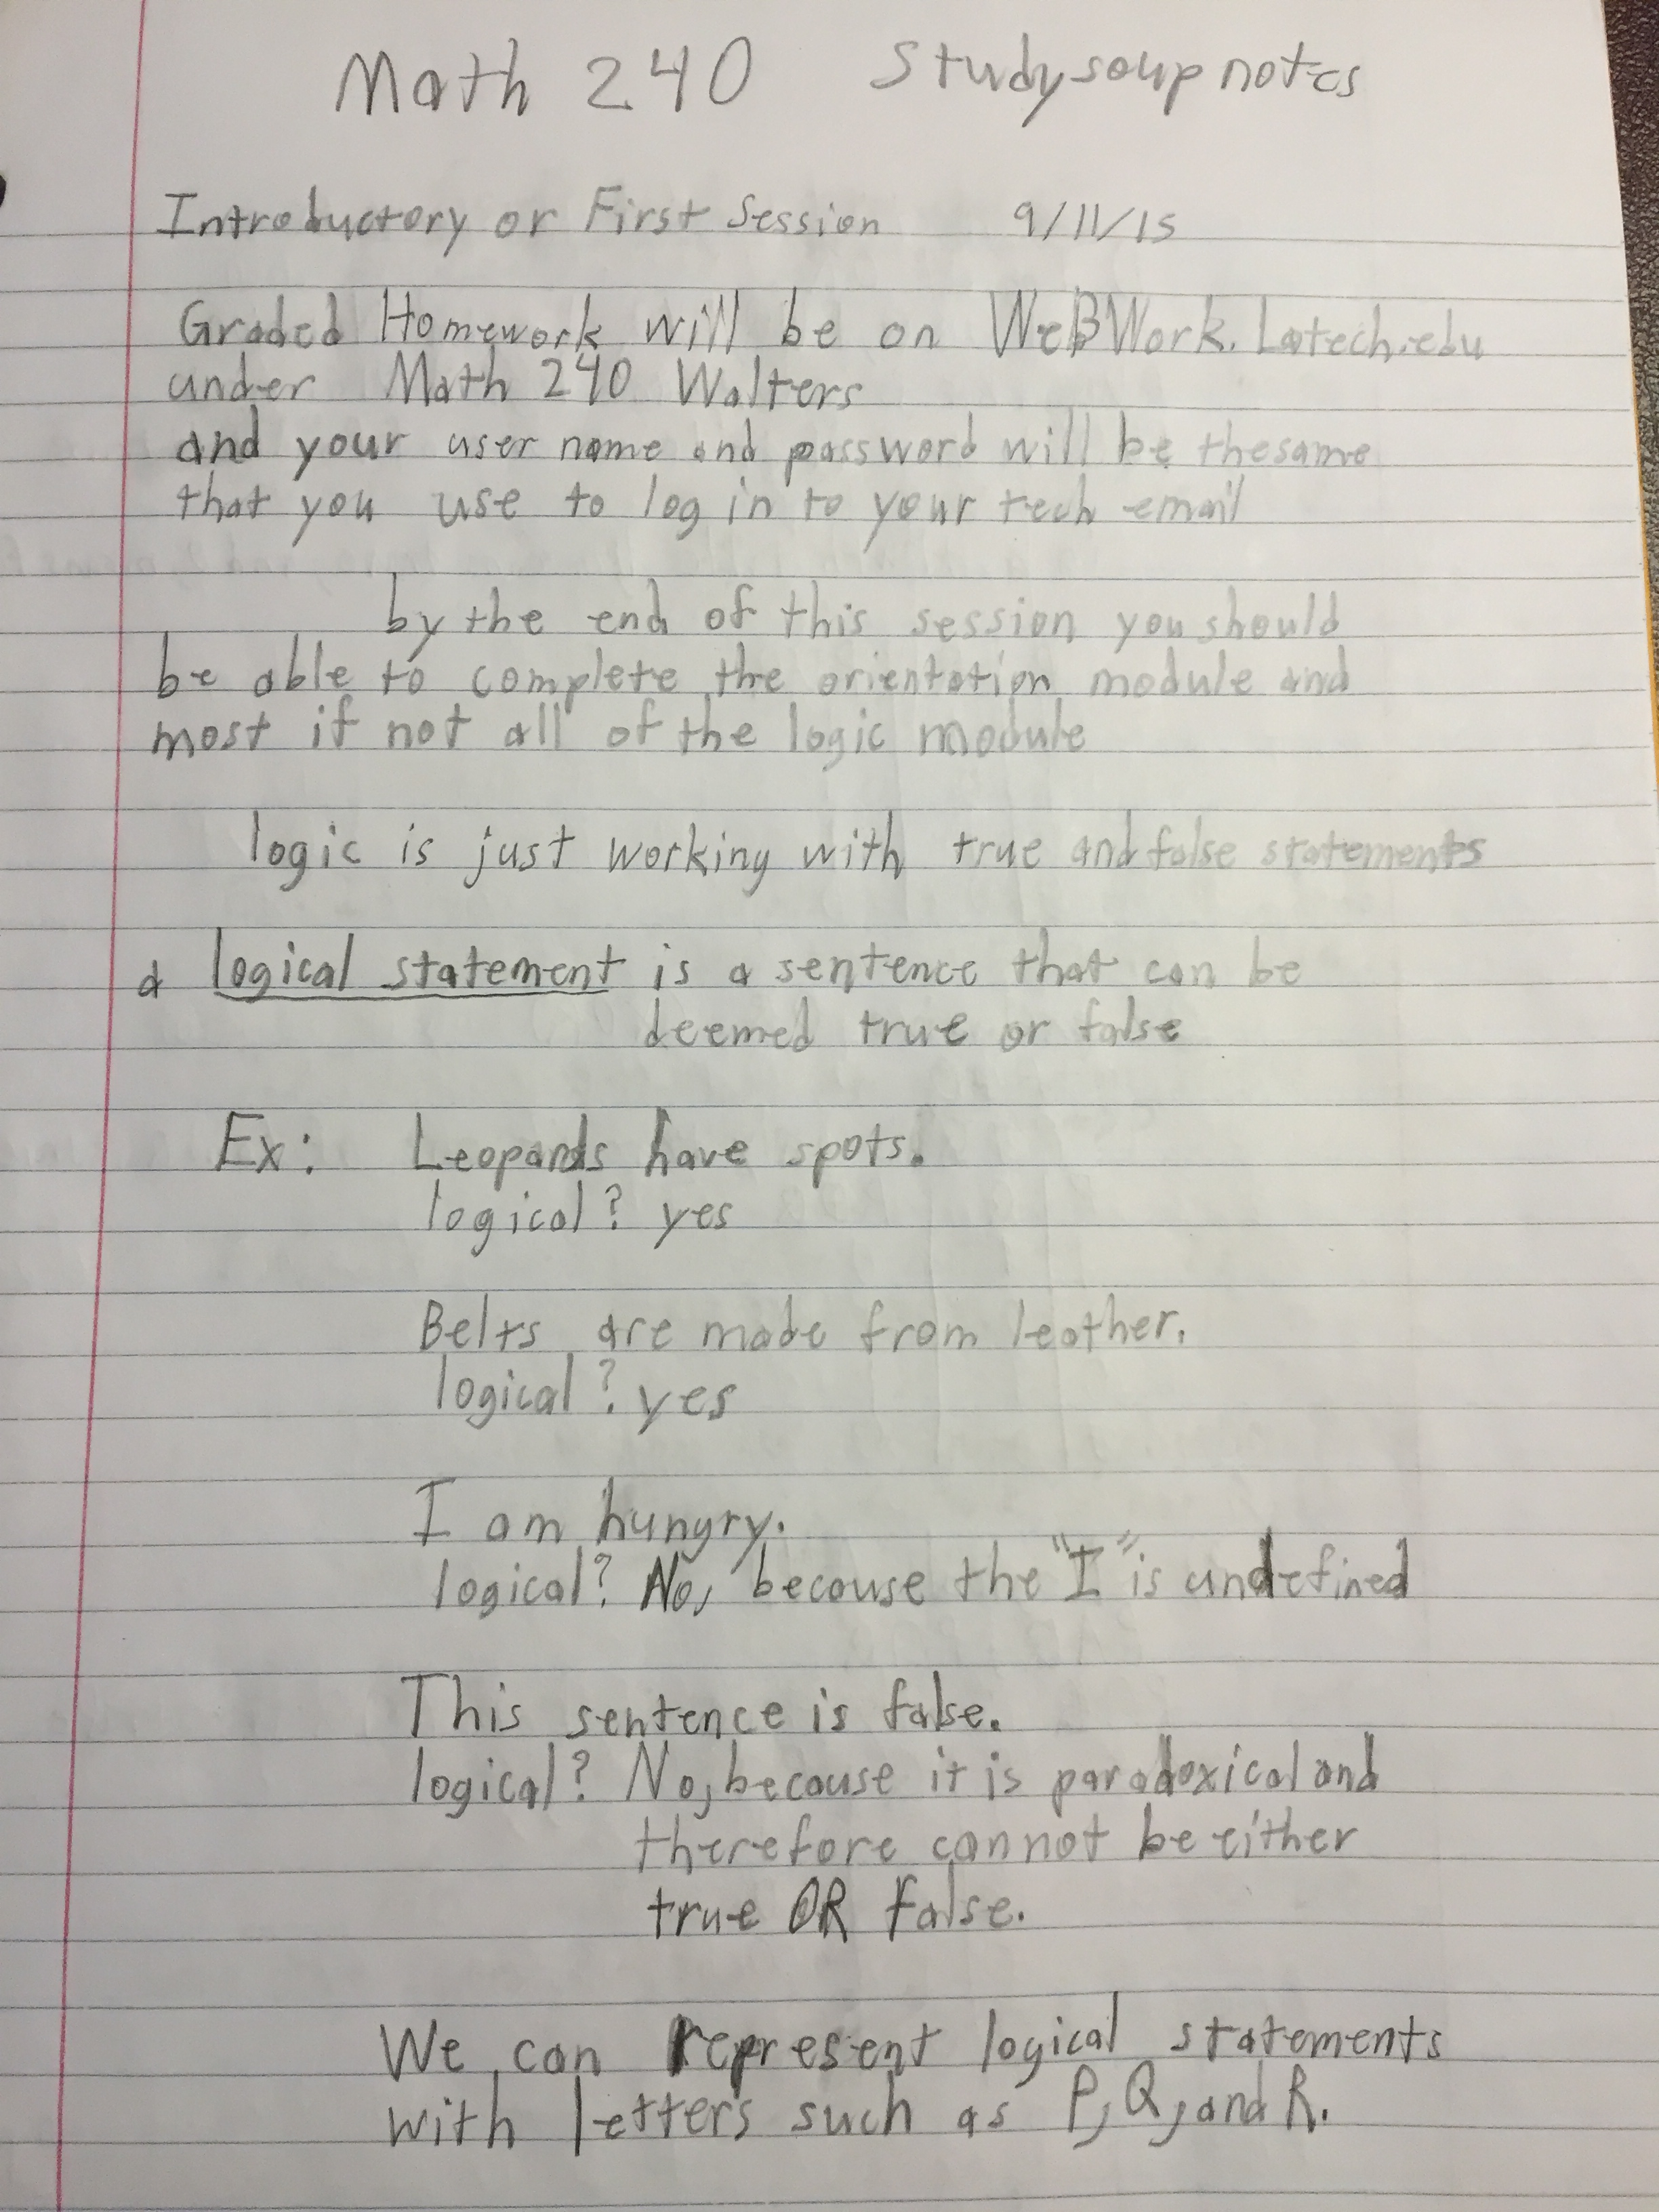 Math 240 Studysoup notes
Introductory or First Session 9/11/15
Graded Homework will be on WeBWork.Latech.edu
under Math 240 Walters
and your user name and password will be thesame
that you use to log in to your tech email
by the end of this session you should
be able to complete the orientation module and
most if not all of the logic module
logic is just working with true and false statements
a logical statement is a sentence that can be
deemed true or false
Ex: Leopards have spots.
logical? yes
Belts are made from leather.
logical? yes
I am hungry.
logical? No, because the "I" is undefined
This sentence is false.
logical? No, because it is paradoxical and
therefore cannot be either
true OR false.
We can represent logical statements
with letters such as P, Q, and R.